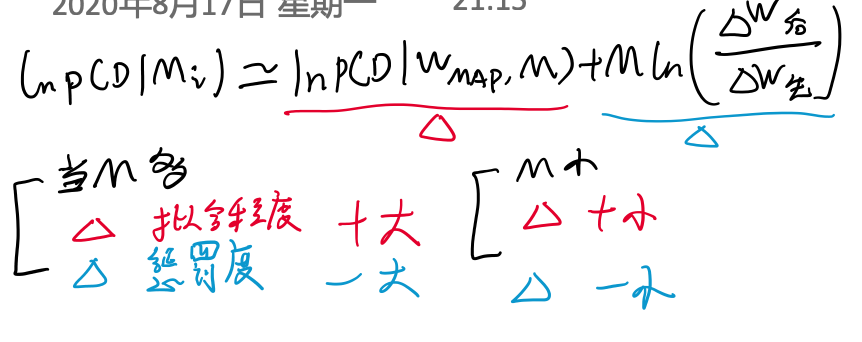 2020年8月17日 星期一 21:15
ln p(D|Mᵢ) ≃ ln p(D|w_MAP, M) + M ln(Δw后/Δw先)
△ △
当M多 M小
△ 拟合程度 +大 △ +小
△ 惩罚度 -大 △ -小